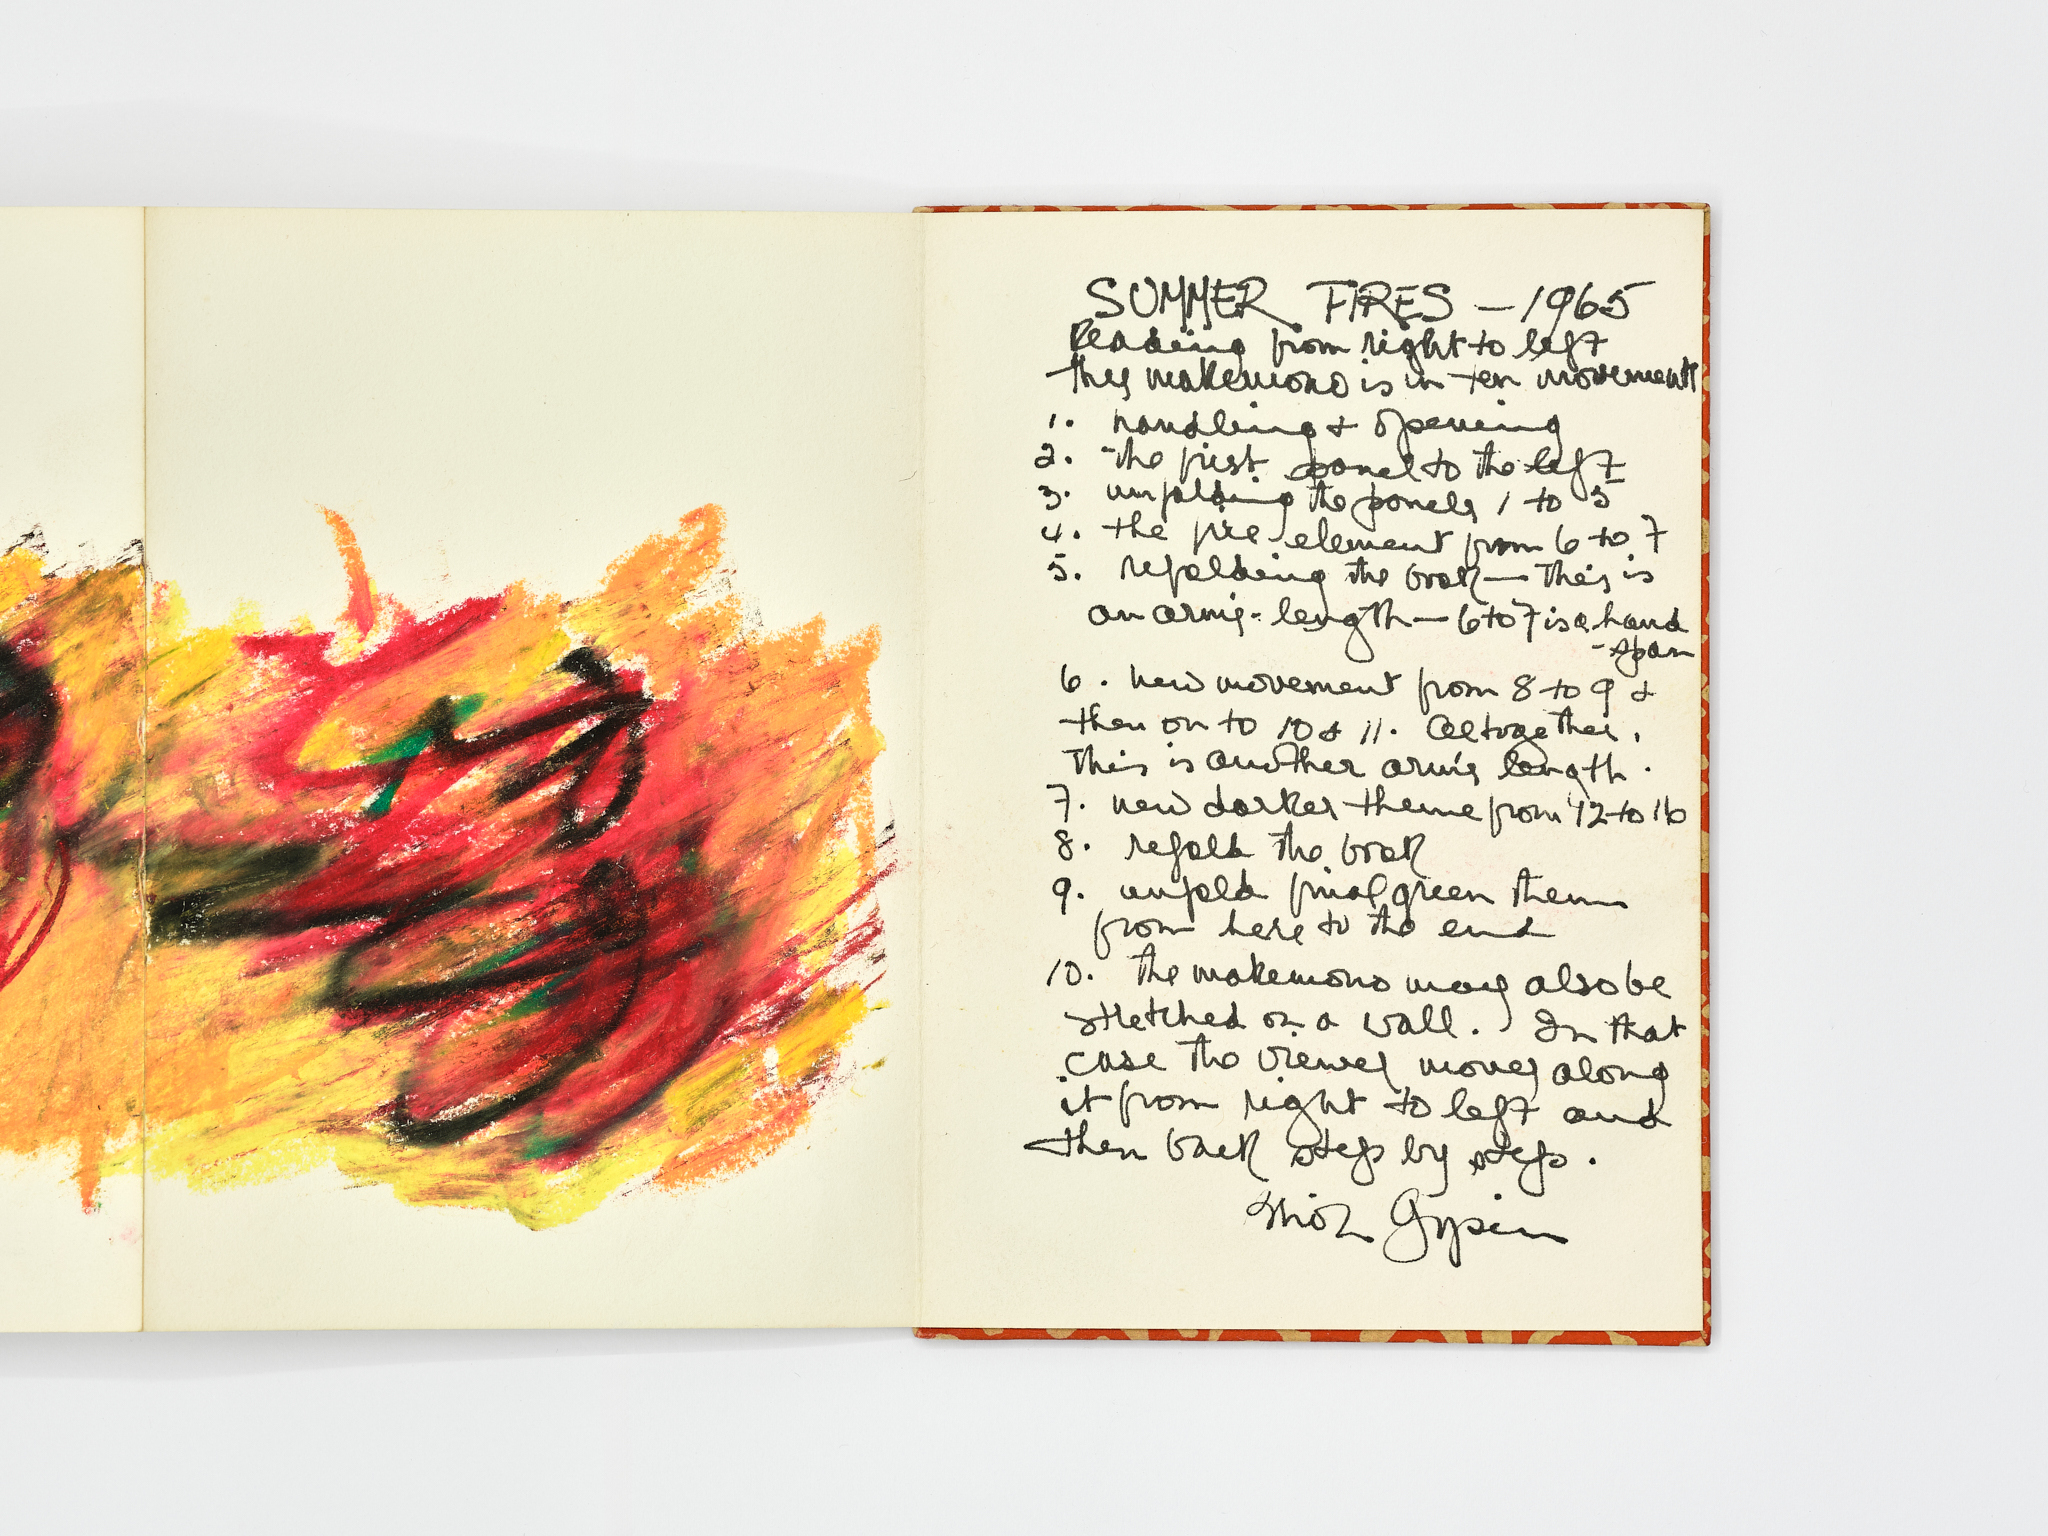 SUMMER FIRES – 1965
Reading from right to left
this makemono is in ten movements
1. handling & opening
2. the first panel to the left
3. unfolding the panels 1 to 5
4. the fire element from 6 to 7
5. refolding the book — this is
an arm's-length — 6 to 7 is a hand
-span
6. new movement from 8 to 9 &
then on to 10 & 11. Altogether,
This is another arm's length.
7. new darker theme from 12 to 16
8. refold the book
9. unfold final green theme
from here to the end
10. The makemono may also be
stretched on a wall. In that
case the viewer moves along
it from right to left and
then back step by step.
Brion Gysin